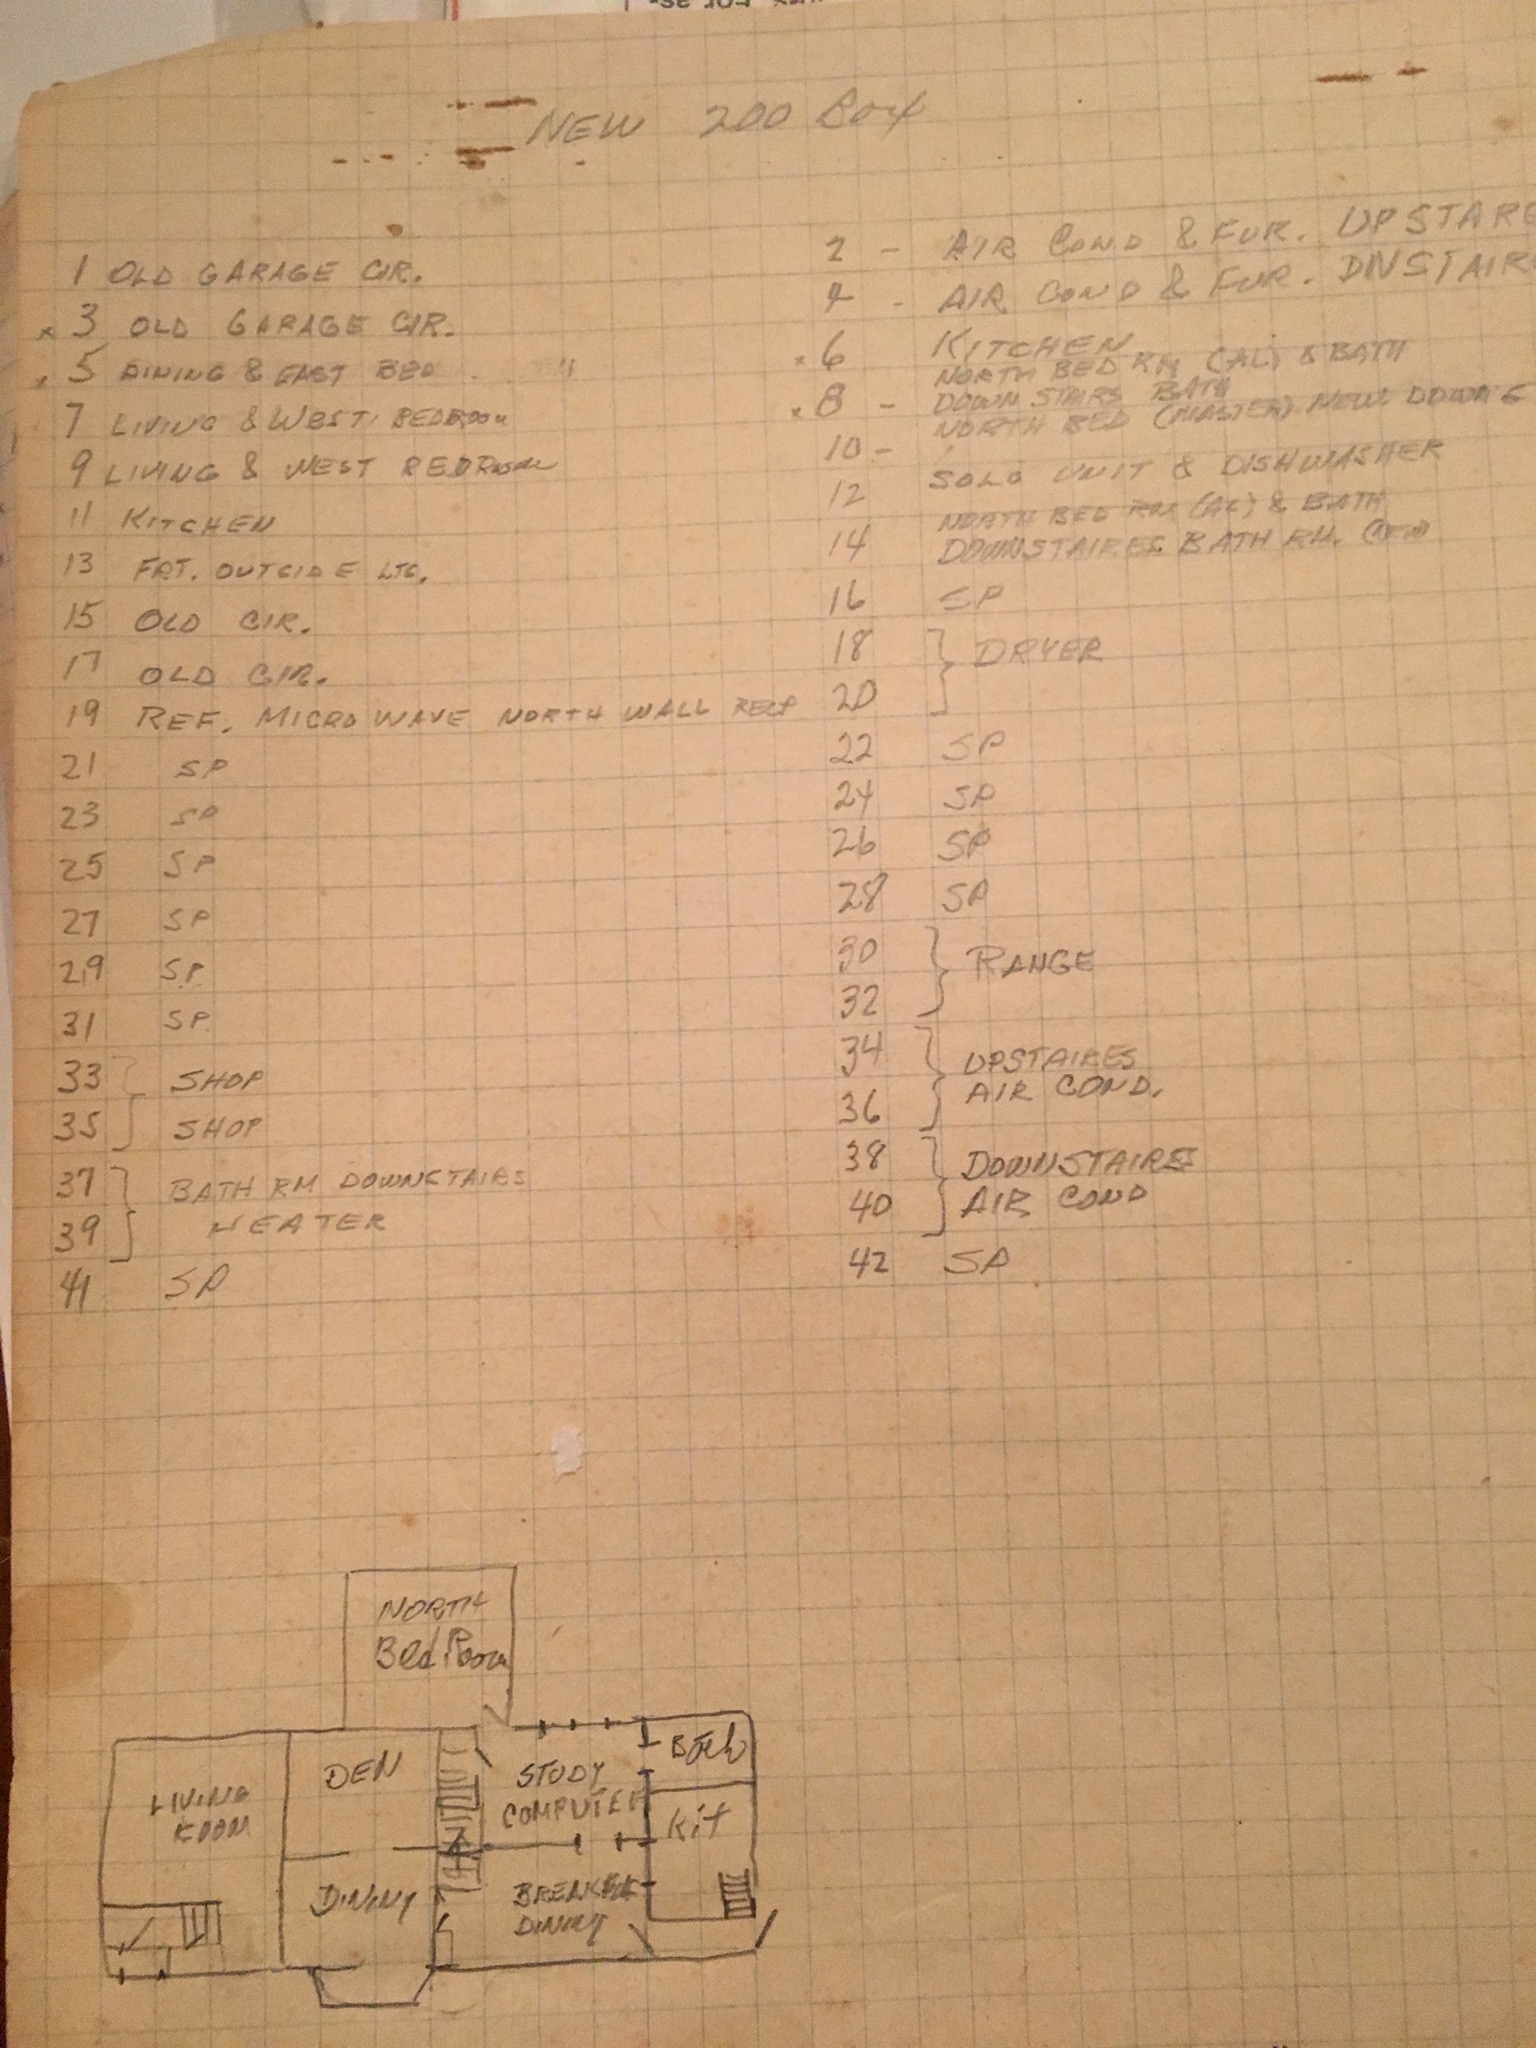 NEW 200 Box
1 OLD GARAGE CIR.
x 3 OLD GARAGE CIR.
x 5 DINING & EAST BED "
7 LIVING & WEST BEDROOM
9 LIVING & WEST BEDROOM
11 KITCHEN
13 FRT. OUTSIDE LTG.
15 OLD CIR.
17 OLD CIR.
19 REF. MICROWAVE NORTH WALL RECP
21 SP
23 SP
25 SP
27 SP
29 SP.
31 SP.
33 } SHOP
35 } SHOP
37 } BATH RM DOWNSTAIRS
39 } HEATER
41 SP
2 - AIR COND & FUR. UPSTARE
4 - AIR COND & FUR. DNSTAIR
x 6 KITCHEN
NORTH BED RM (AL) & BATH
x 8 - DOWN STAIRS BATH
NORTH BED (MASTER) NEW
10 -
12 SOLO UNIT & DISHWASHER
NORTH BED RM (AL) & BATH
14 DOWNSTAIRES BATH RM. (NEW)
16 SP
18 } DRYER
20
22 SP
24 SP
26 SP
28 SP
30 } RANGE
32
34 } UPSTAIRES
36 AIR COND.
38 } DOWNSTAIRES
40 AIR COND
42 SP
NORTH
Bed Room
LIVING
ROOM
DEN
DINING
STUDY
COMPUTER
BREAKFAST
DINING
Bath
Kit